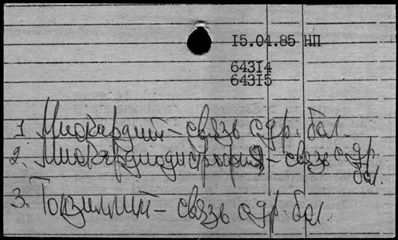 15.04.85 НП
64314
64315
1. Миокардит - связь с др. бол.
2. Миокардиодистрофия - связь с др.
бол.
3. Тонзиллит - связь с др. бол.